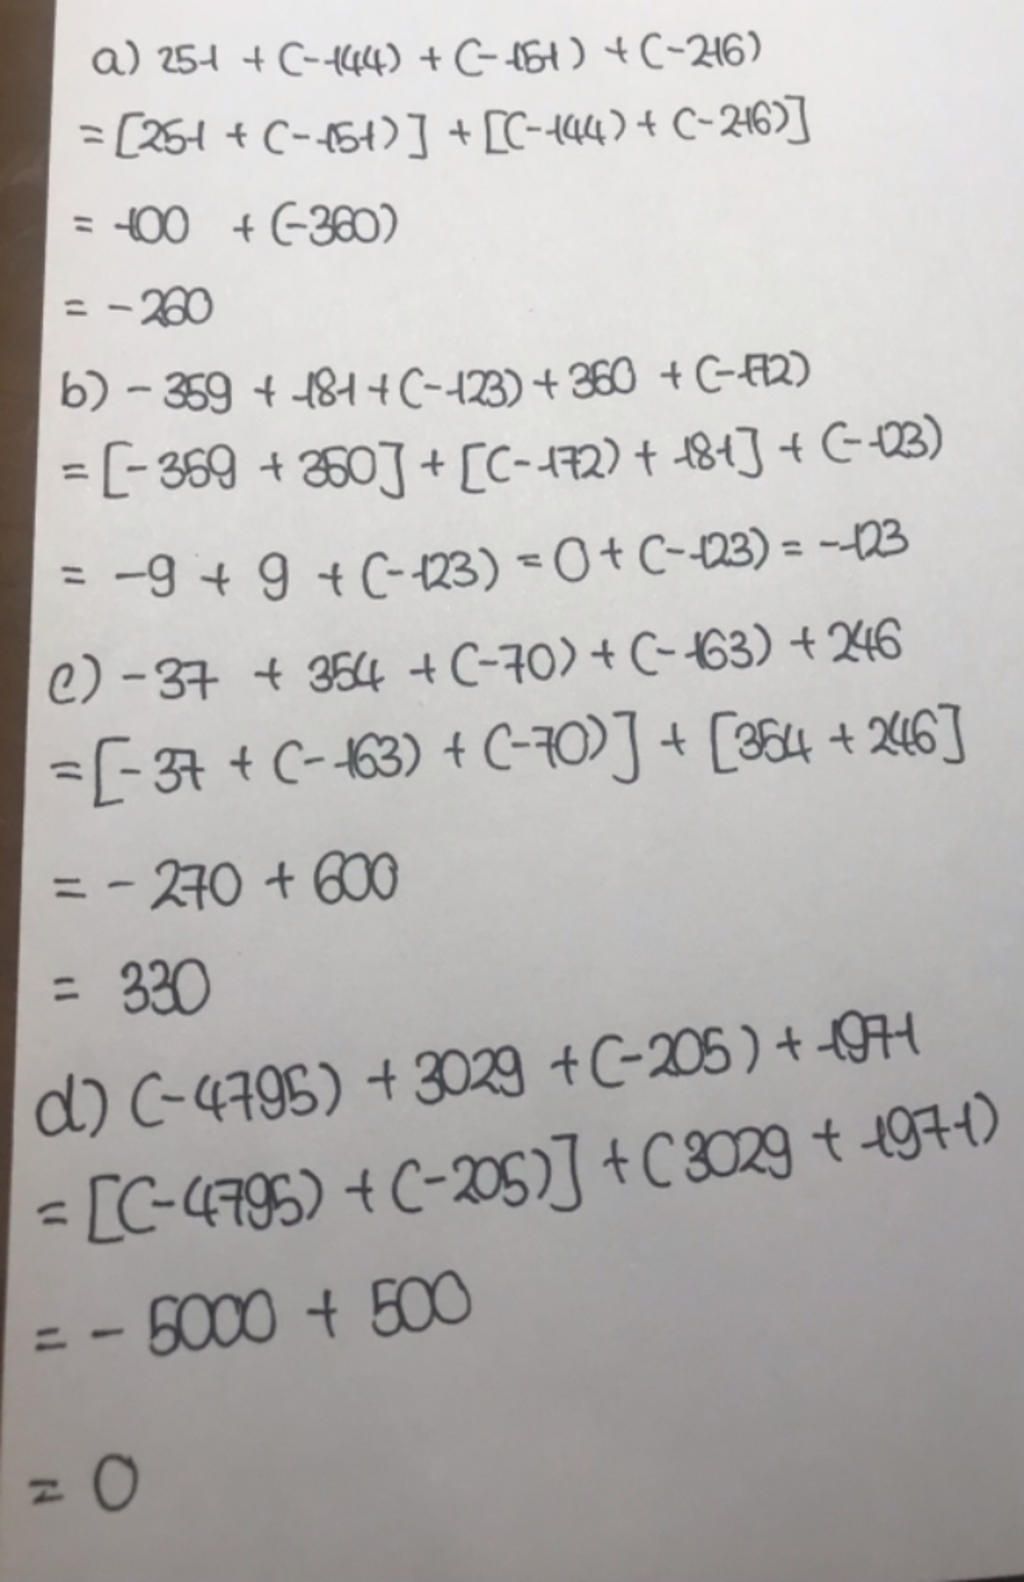 a) 251 + (-144) + (-151) + (-216)
= [251 + (-151)] + [(-144) + (-216)]
= 100 + (-360)
= - 260
b) - 359 + 181 + (-123) + 350 + (-172)
= [- 359 + 350] + [(-172) + 181] + (-123)
= -9 + 9 + (-123) = 0 + (-123) = -123
c) - 37 + 354 + (-70) + (-163) + 246
= [- 37 + (-163) + (-70)] + [354 + 246]
= - 270 + 600
= 330
d) (-4795) + 3029 + (-205) + 1971
= [(-4795) + (-205)] + (3029 + 1971)
= - 5000 + 500
= 0